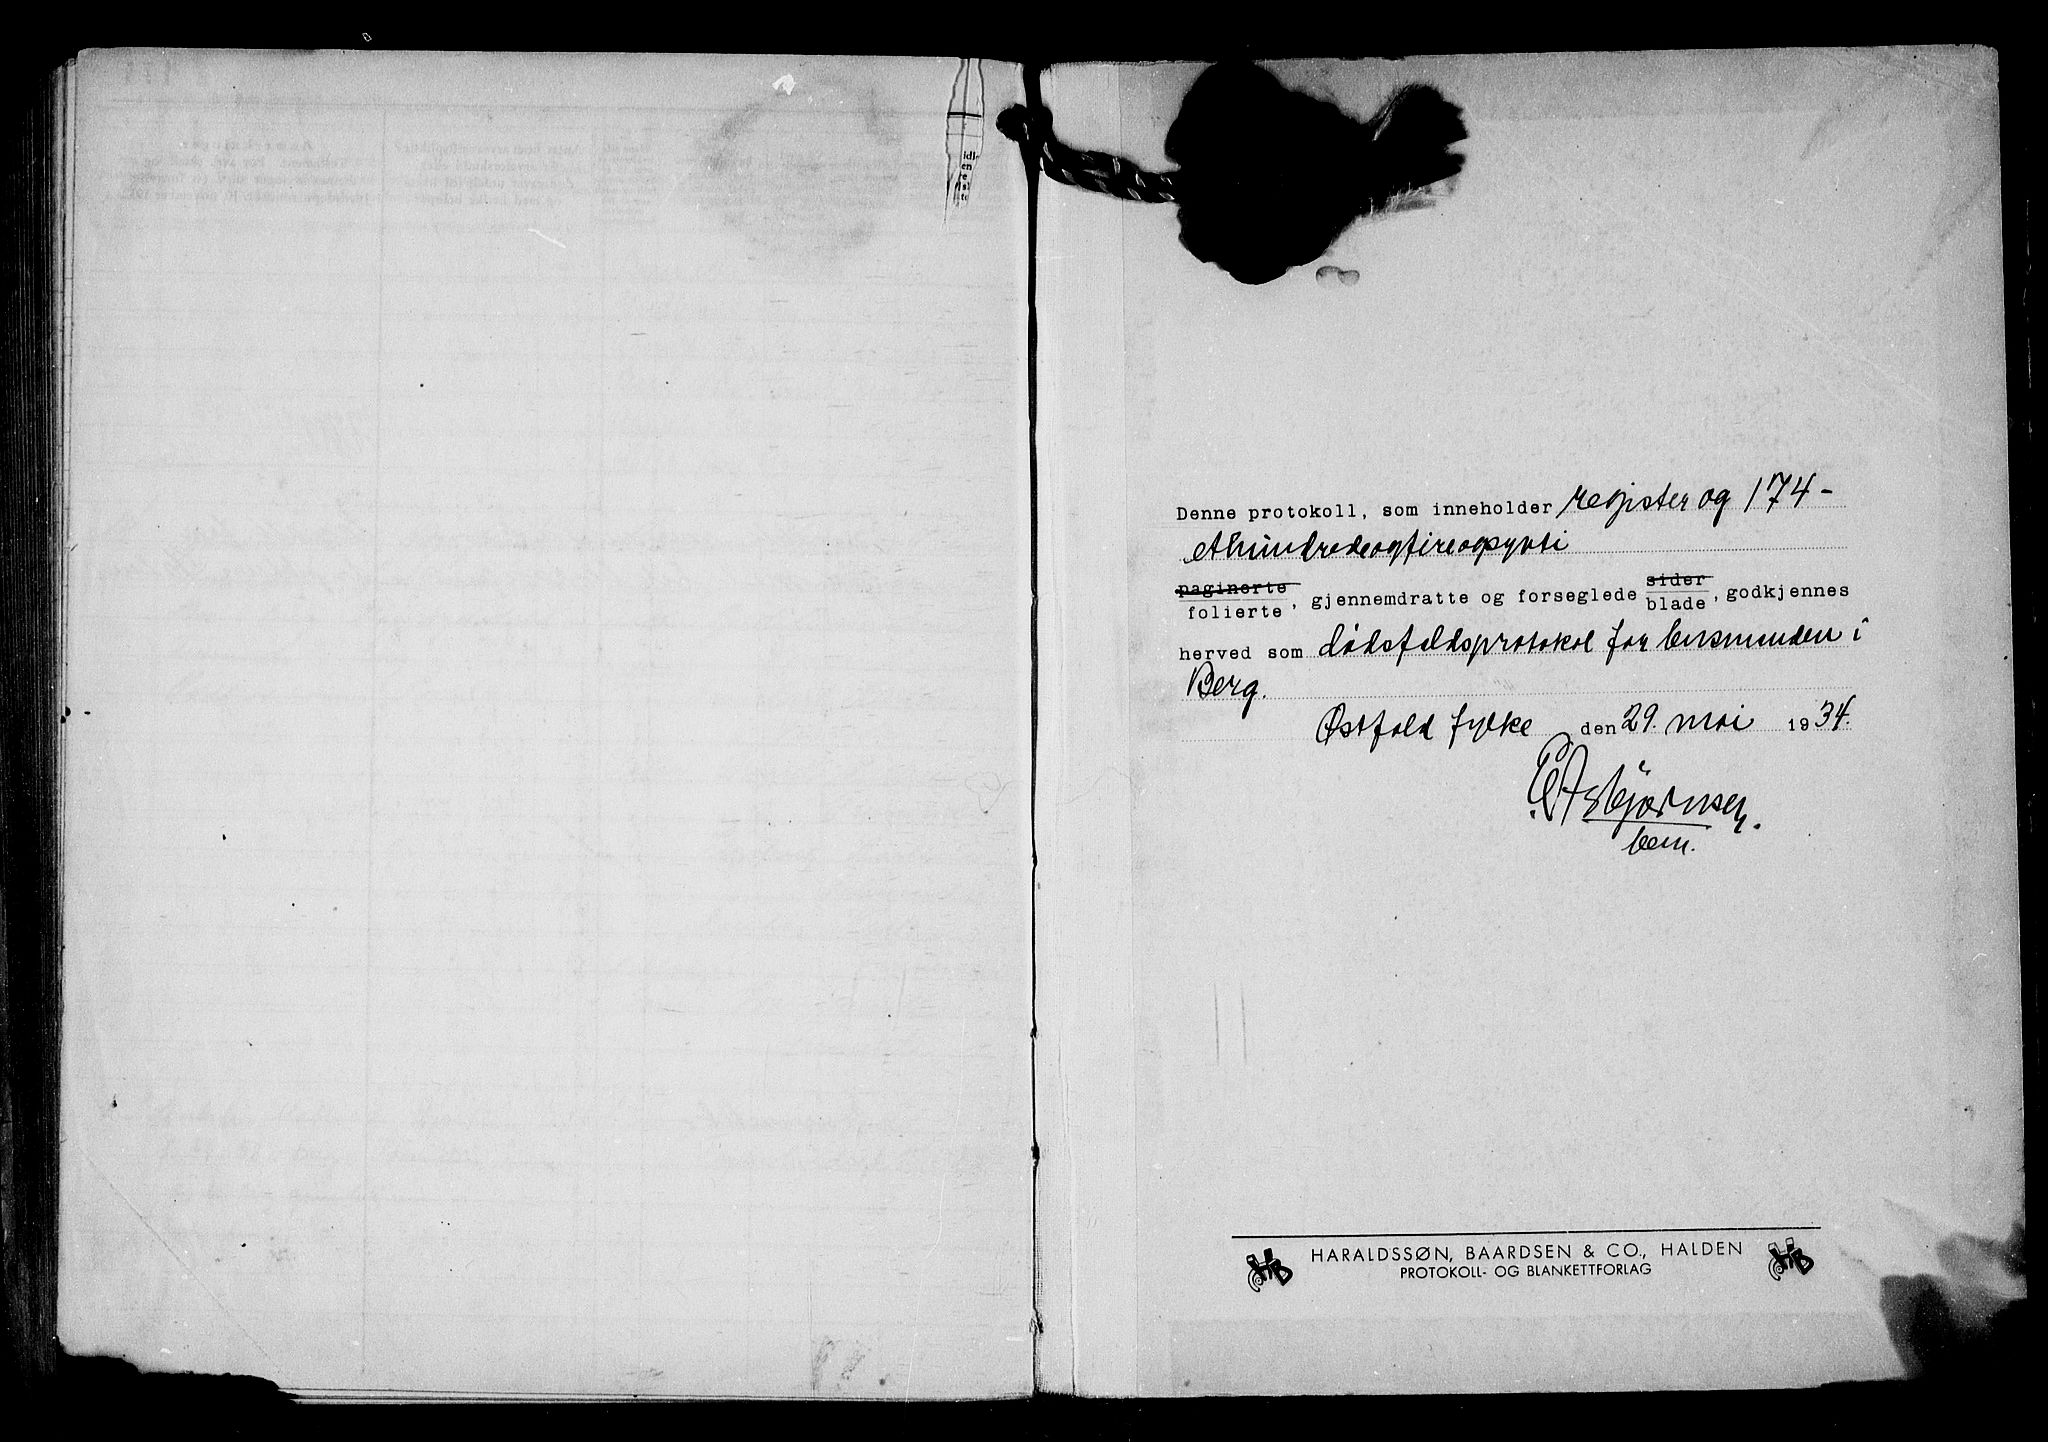 Denne protokoll, som inneholder register og 174-
ethundredeogfireogsytti
paginerte sider
folierte, gjennemdratte og forseglede blade, godkjennes
herved som dødsfaldsprotokol for lensmanden i
Berg.
Østfold fylke den 29. mai 1934.
E Asbjørnsen.
HARALDSSØN, BAARDSEN & CO., HALDEN
PROTOKOLL- OG BLANKETTFORLAG